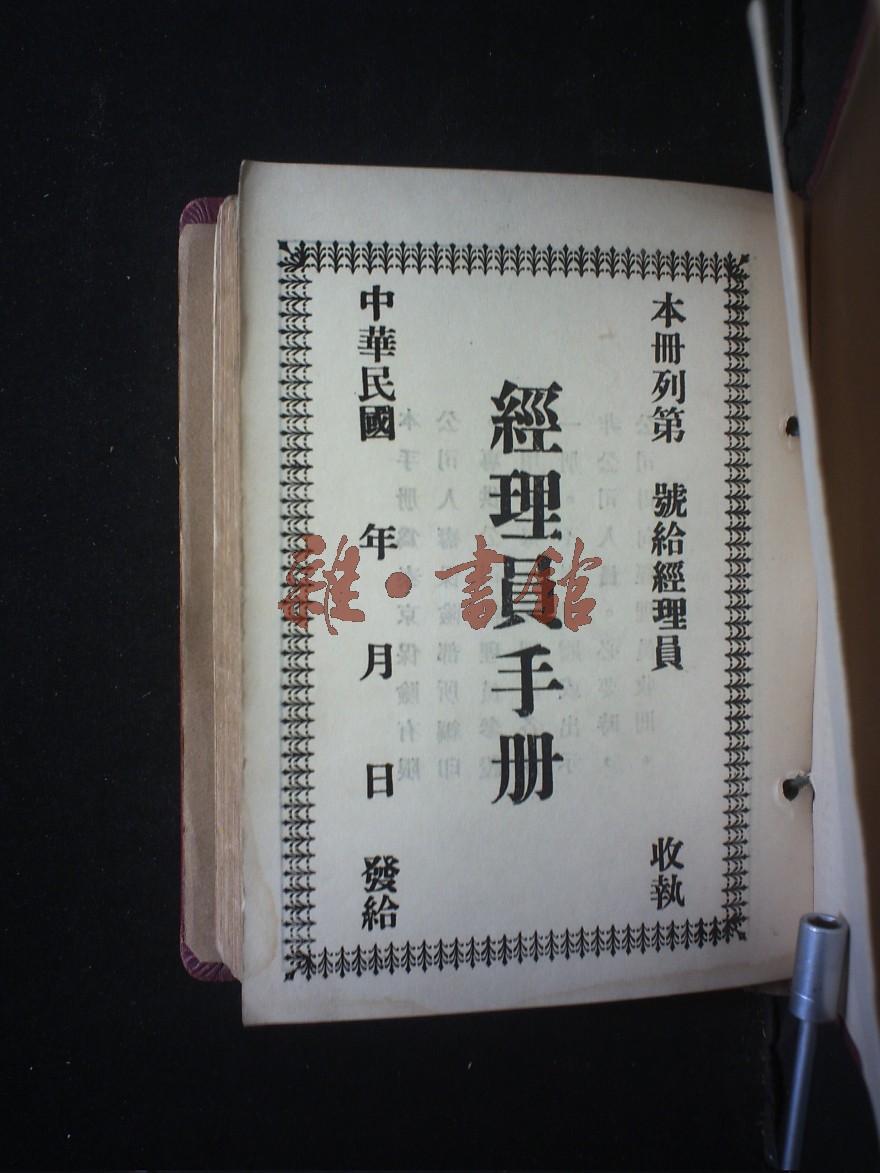 本冊列第　號給經理員　收執
經理員手册
中華民國　年　月　日　發給
雜·書館